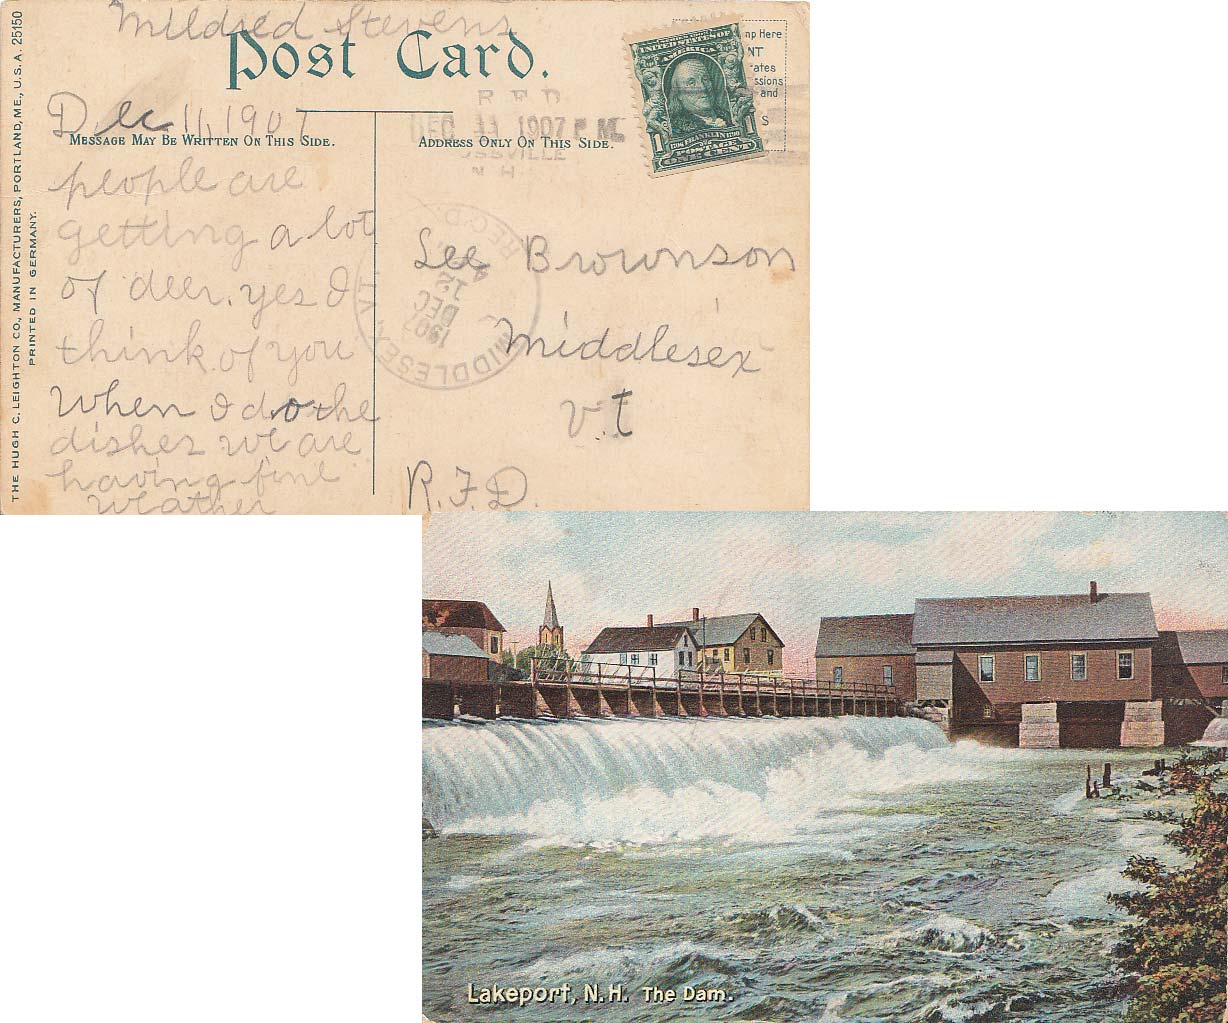 Mildred Stevens
Post Card.
Dec. 11, 1907
MESSAGE MAY BE WRITTEN ON THIS SIDE.
people are
getting a lot
of deer. yes I
think of you
When I do the
dishes we are
having fine
weather
THE HUGH C. LEIGHTON CO., MANUFACTURERS, PORTLAND, ME., U.S.A. 25150
PRINTED IN GERMANY.
R.F.D.
DEC 11 1907 P.M.
N.H.
ADDRESS ONLY ON THIS SIDE.
UNITED STATES OF
AMERICA
1706 FRANKLIN 1790
1 POSTAGE 1
ONE CENT
Here
and
MIDDLESEX, VT.
REC'D
DEC
12
1907
Lee Brownson
Middlesex
V.t
R.F.D.
Lakeport, N.H. The Dam.